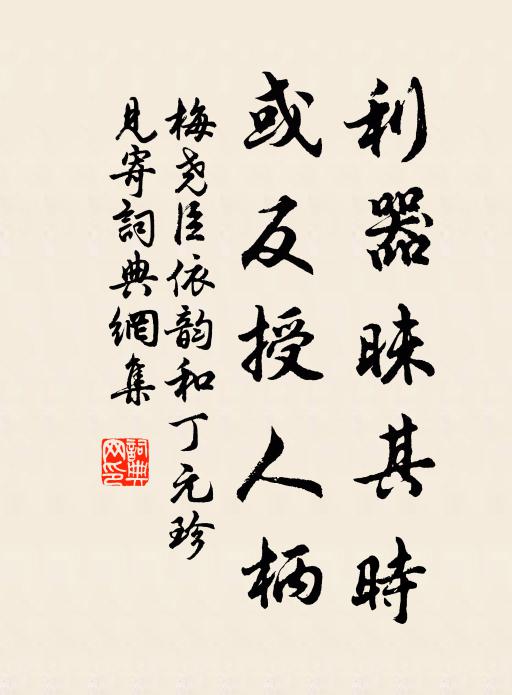 利器昧其時
或反授人柄
梅尧臣依韵和丁元珍
見寄詞典網集
詞典
网印